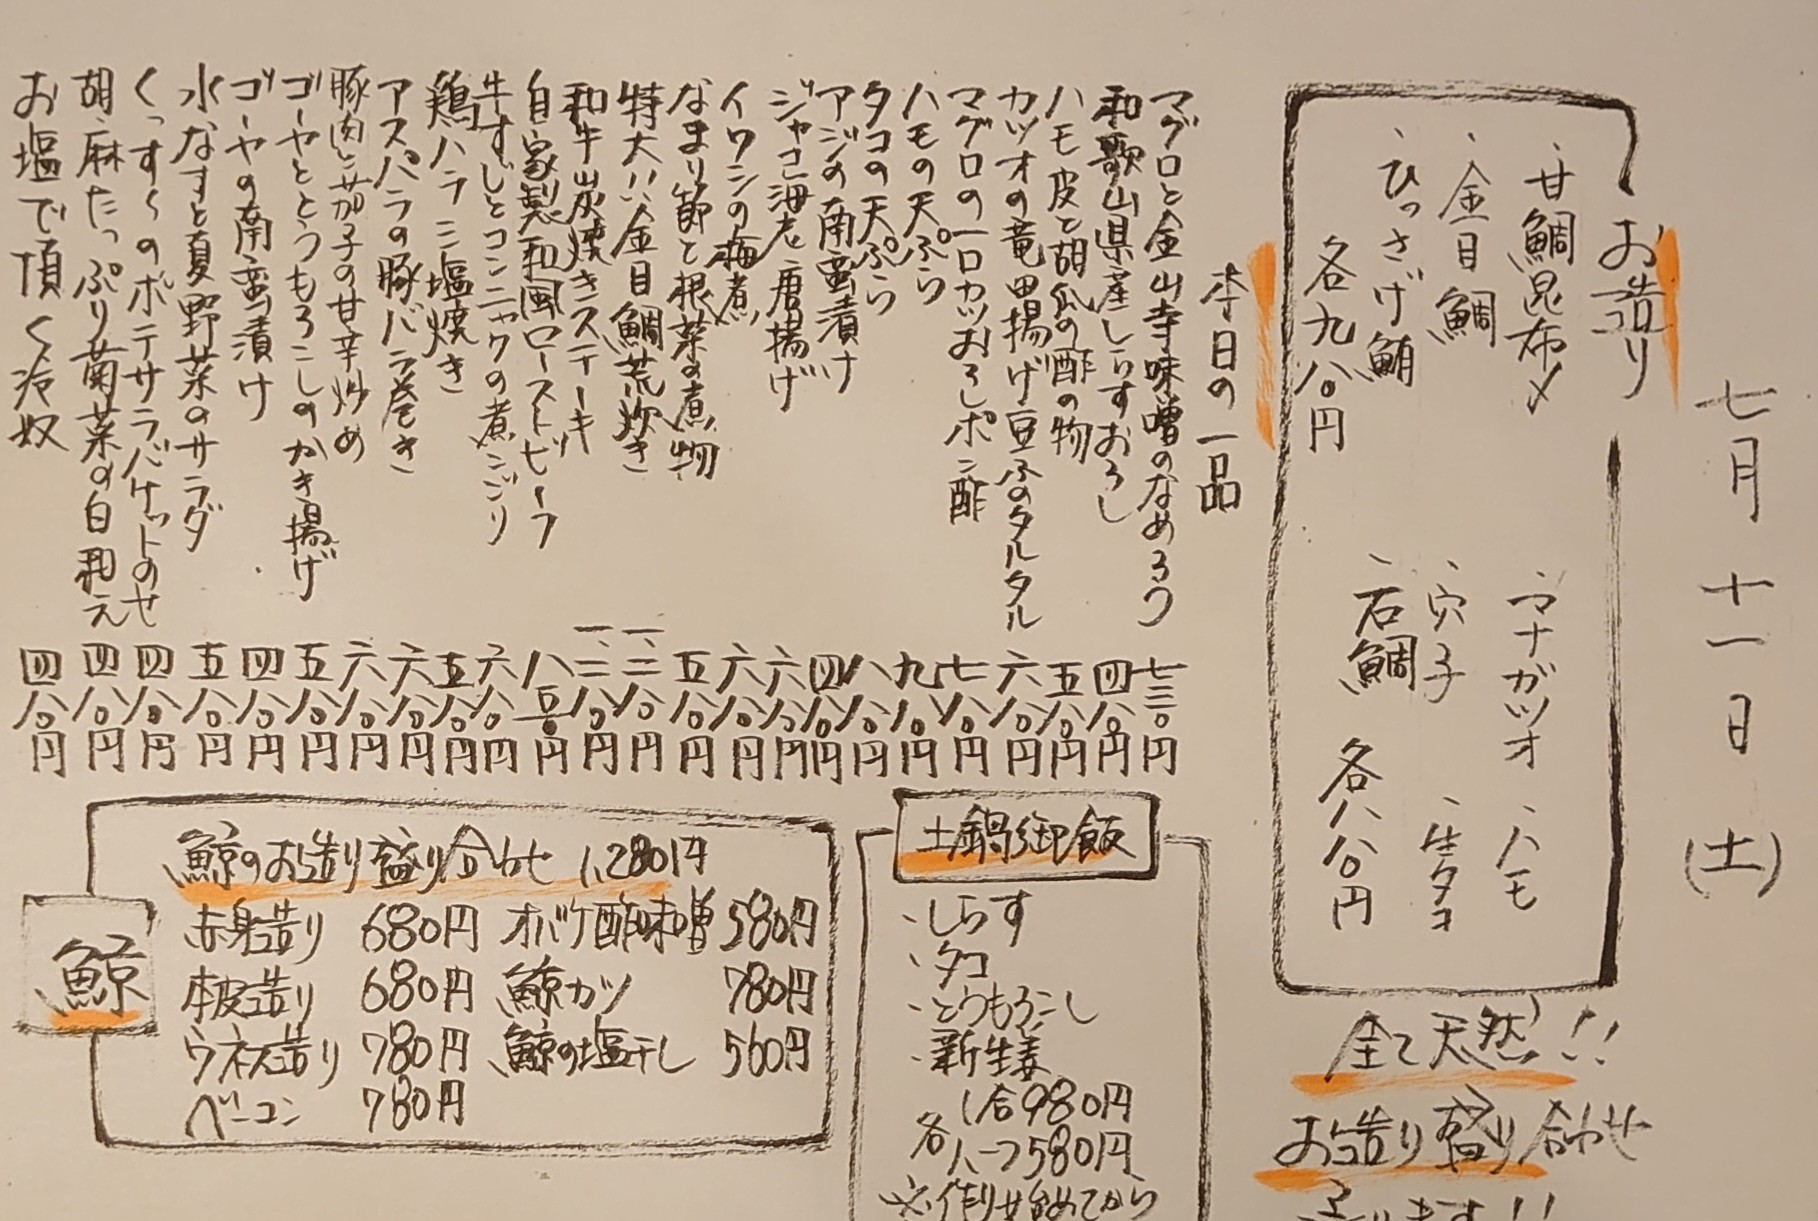 七月十一日(土)
お造り
、甘鯛昆布〆
、マナガツオ
、ハモ
、金目鯛
、穴子
、生タコ
、ひっさげ鮪
、石鯛
各九八〇円
各八八〇円
全て天然!!
お造り盛り合わせ
本日の一品
マグロと金山寺味噌のなめろう 七三〇円
和歌山県産しらすおろし 四八〇円
ハモ皮と胡瓜の酢の物 五八〇円
カツオの竜田揚げ豆ふのタルタル 六八〇円
マグロの一口カツおろしポン酢 七八〇円
ハモの天ぷら 九八〇円
タコの天ぷら 八八〇円
アジの南蛮漬け 四八〇円
ジャコ海老唐揚げ 六八〇円
イワシの梅煮 六八〇円
なまり節と根菜の煮物 五八〇円
特大!!金目鯛荒炊き 一、二八〇円
和牛炭焼きステーキ 一、二八〇円
自家製和風ローストビーフ 八八〇円
牛すじとコンニャクの煮こごり 六八〇円
鶏ハラミ塩焼き 五八〇円
アスパラの豚バラ巻き 六八〇円
豚肉と茄子の甘辛炒め 六八〇円
ゴーヤととうもろこしのかき揚げ 五八〇円
ゴーヤの南蛮漬け 四八〇円
水なすと夏野菜のサラダ 五八〇円
くっすくのポテサラバケットのせ 四八〇円
胡麻たっぷり菊菜の白和え 四八〇円
お塩で頂く冷奴 四八〇円
土鍋御飯
・しらす
・タコ
・とうもろこし
・新生姜
1合980円
各ハーフ580円
※作り始めてから
鯨
鯨のお造り盛り合わせ 1,280円
赤身造り 680円 オバケ酢味噌 580円
本皮造り 680円 鯨カツ 780円
ウネス造り 780円 鯨の塩干し 560円
ベーコン 780円